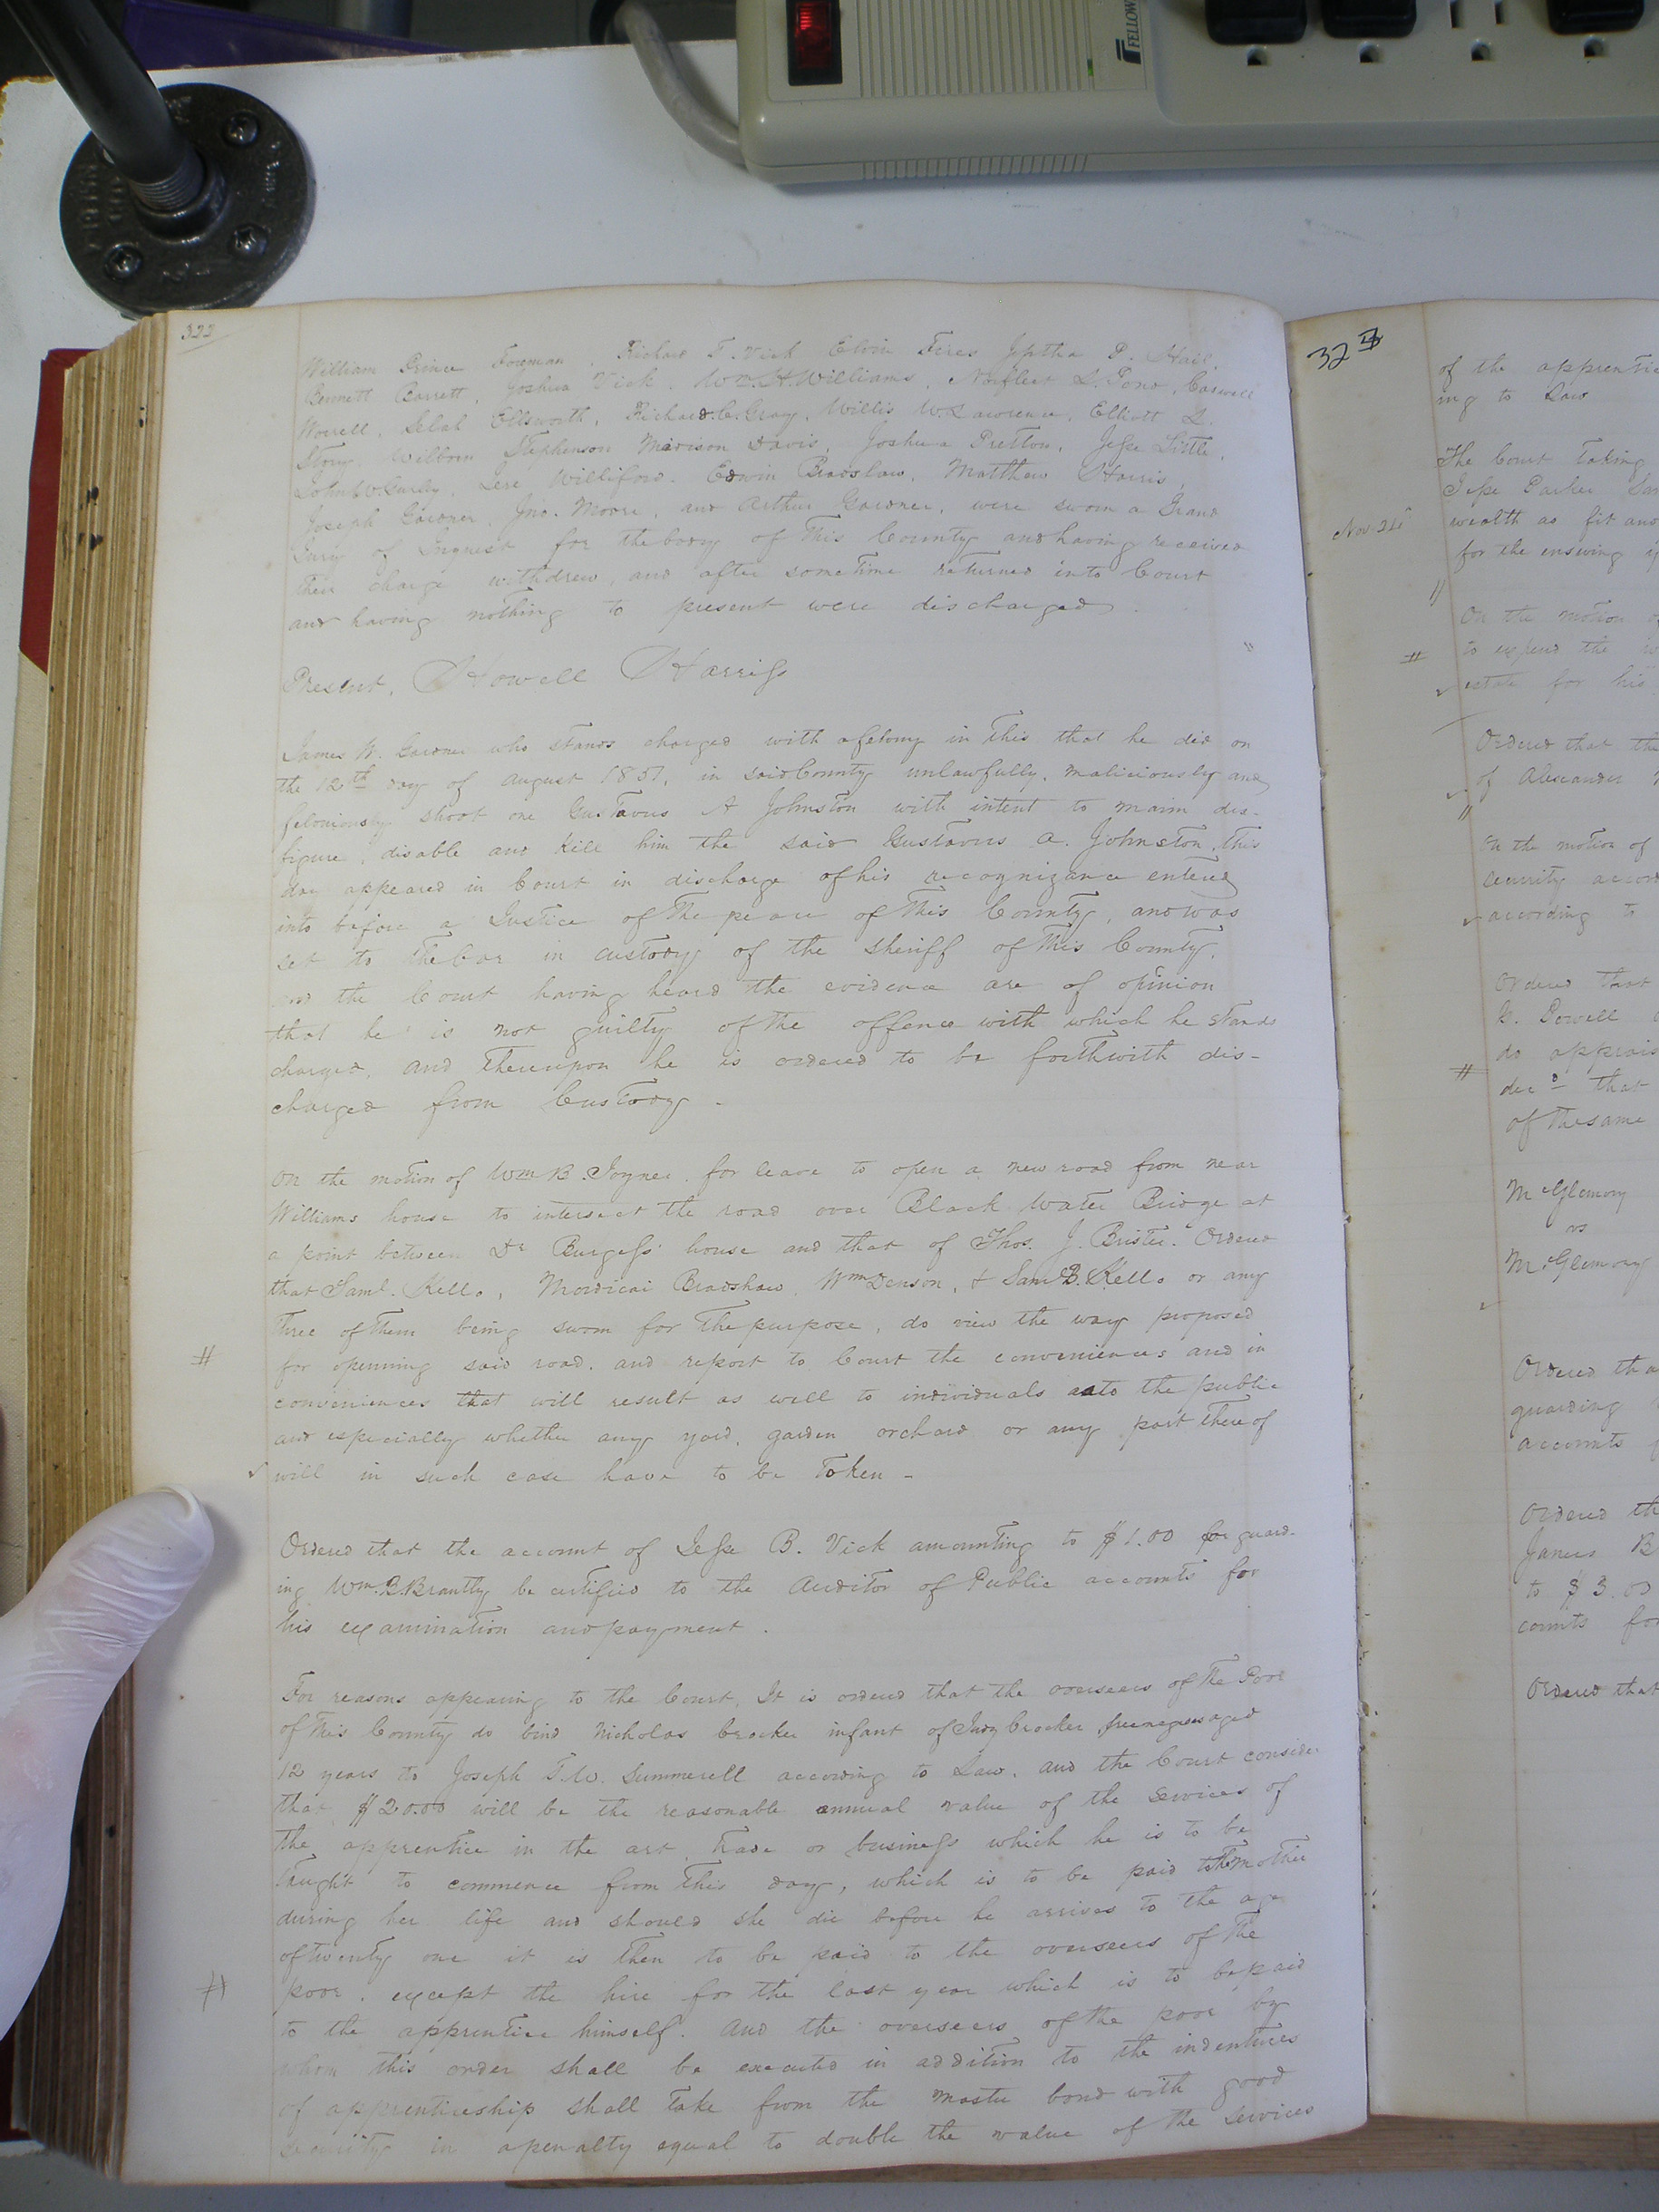 FELLOW
322
William Prince Foreman, Richard T. Vick Elvin Fires Jeptha P. Hail,
Bennett Barrett, Joshua Vick, Wm. H. Williams, Norfleet L. Pond, Caswell
Worrell, Selah Ellsworth, Richard. C. Gray, Willis W. Lawrence, Elliott L.
Story, Wilborn Stephenson Madison Davis, Joshua Pretlow, Jesse Little,
John W. Gurley, Jere Williford. Edwin Bradshaw, Matthew Harris,
Joseph Gardner, Jno. Moore, and Arthur Gardner, were sworn a Grand
Jury of Inquest for the body of this County and having received
their charge withdrew, and after sometime returned into Court
and having nothing to present were discharged.
Present, Howell Harriss
James W. Gardner who stands charged with a felony in this that he did on
the 12th day of August 1851, in said County unlawfully, maliciously and
feloniously shoot one Gustavus A Johnston with intent to maim dis-
figure, disable and kill him the said Gustavus A. Johnston, this
day appeared in Court in discharge of his recognizance entered
into before a Justice of the peace of this County, and was
set to the bar in custody of the sheriff of this County,
and the Court having heard the evidence are of opinion
that he is not guilty of the offence with which he stands
charged, and thereupon he is ordered to be forthwith dis-
charged from Custody -
On the motion of Wm B. Joyner for leave to open a new road from near
Williams house to intersect the road over Black Water Bridge at
a point between Dr Burgess' house and that of Thos. J. Bristee. Ordered
that Saml. Kello, Mordicai Bradshaw, Wm Denson, & Saml B. Kello or any
three of them being sworn for the purpose, do view the way proposed
# for openning said road, and report to Court the conveniences and in
conveniences that will result as well to individuals as to the public
and especially whether any yard, garden orchard or any part thereof
✓ will in such case have to be taken -
Ordered that the account of Jesse B. Vick amounting to $1.00 for guard-
ing Wm. B. Brantly be certified to the Auditor of Public accounts for
his examination and payment.
For reasons appearing to the Court, It is ordered that the overseers of the Poor
of this County do bind Nicholas Crocker infant of Judy Crocker free negroes aged
12 years to Joseph T. W. Summerell according to Law, and the Court consider
that $20.00 will be the reasonable annual value of the services of
the apprentice in the art, trade or business which he is to be
taught to commence from this day, which is to be paid to the mother
during her life and should she die before he arrives to the age
of twenty one it is then to be paid to the overseers of the
# poor, except the hire for the last year which is to be paid
to the apprentice himself. And the overseers of the poor by
whom this order shall be executed in addition to the indentures
of apprenticeship shall take from the master bond with good
security in a penalty equal to double the value of the services
323
of the apprentic
ing to Law
The Court taking
Jesse Parker
Nov 24 wealth as fit and
for the ensuing y
On the motion of
# to expend the
✓ estate for his
Ordered that the
✓ of Alexander
On the motion of
security accord
✓ according to
Ordered that
K. Powell
do apprais
# decd that
of the same
McGlemory
vs
McGlemory
Ordered tha
guarding
accounts f
Ordered th
James B
to $3.00
counts for
Ordered that